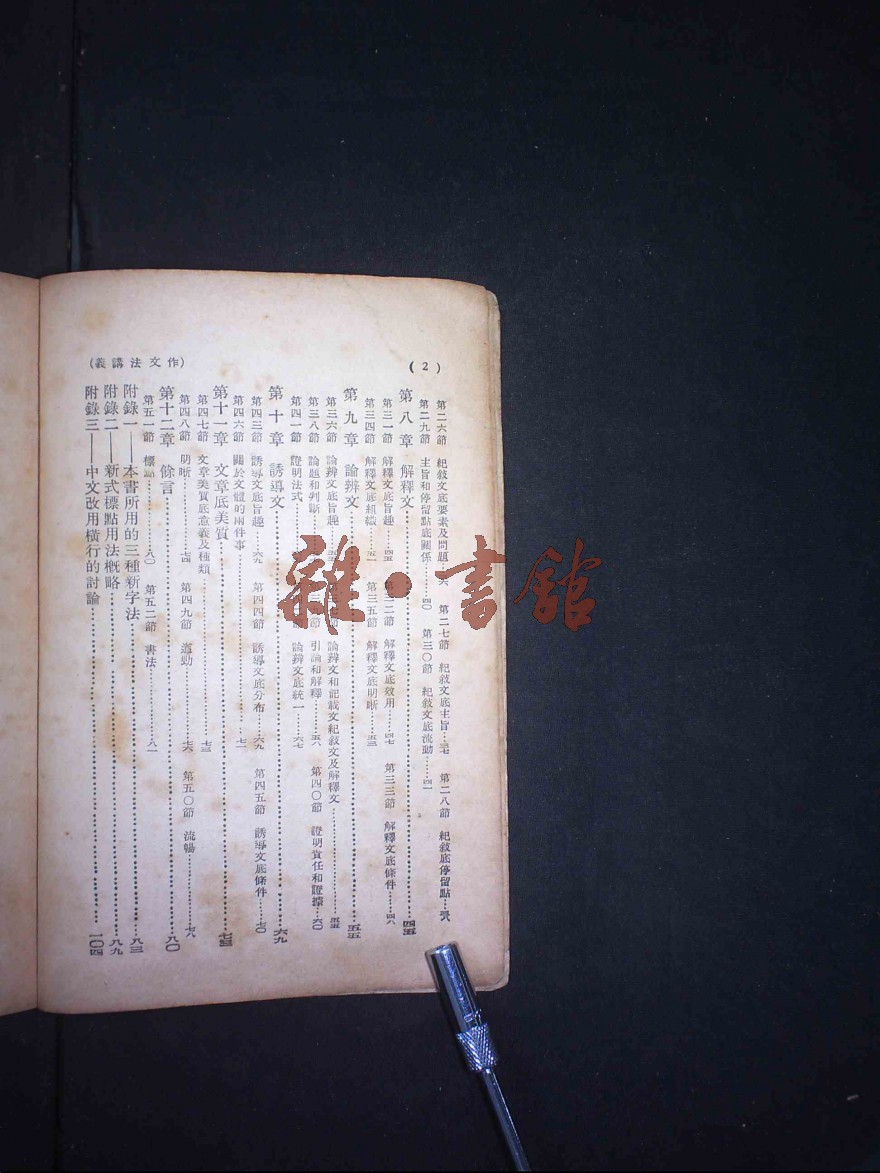 (2)
(作文法講義)
第二六節 紀敘文底要素及問題 第二七節 紀敘文底主旨……三七 第二八節 紀敘底停留點……三八
第二九節 主旨和停留點底關係……四〇 第三〇節 紀敘文底流動……四一
第八章 解釋文……四五
第三一節 解釋文底旨趣……四五 第三二節 解釋文底效用……四七 第三三節 解釋文底條件……四八
第三四節 解釋文底組織……五一 第三五節 解釋文底明晰……五三
第九章 論辨文……五五
第三六節 論辨文底旨趣 論辨文和記載文紀敘文及解釋文……五五
第三八節 論題和判斷 引論和解釋……五八 第四〇節 證明責任和證據……六〇
第四一節 證明法式 論辨文底統一……六七
第十章 誘導文……六九
第四三節 誘導文底旨趣……六九 第四四節 誘導文底分布……六九 第四五節 誘導文底條件……七〇
第四六節 關於文體的兩件事……七二
第十一章 文章底美質……七三
第四七節 文章美質底意義及種類……七三
第四八節 明晰……七四 第四九節 遒勁……七六 第五〇節 流暢……七八
第十二章 餘言……八〇
第五一節 標……八〇 第五二節 書法……八一
附錄一——本書所用的三種新字法……八三
附錄二——新式標點用法概略……八九
附錄三——中文改用橫行的討論……一〇四
雜·書館